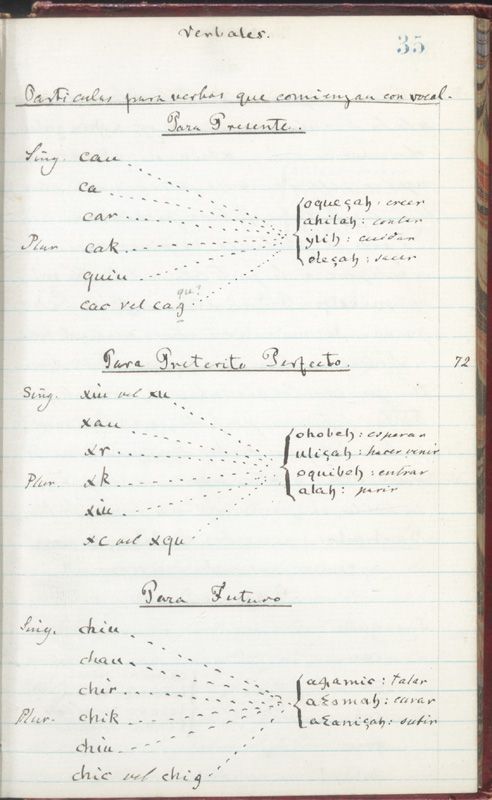 Verbales.
35
Particulas para verbos que comienzan con vocal.
Para Presente.
Sing. cau
ca
car
Plur cak
quiu
cac vel cag
qu?
oqueçah : creer
ahilah : contar
ylih : cuidar
oleçah :
Para Preterito Perfecto.
72
Sing. xiu vel xu
xau
xr
Plur. xk
xiu
xc vel xqu
ohobeh : esperar
uliçah : hacer venir
oquibeh : entrar
alah : parir
Para Futuro
Sing. chiu
chau
chir
Plur. chik
chiu
chic vel chig
: talar
: curar
: subir